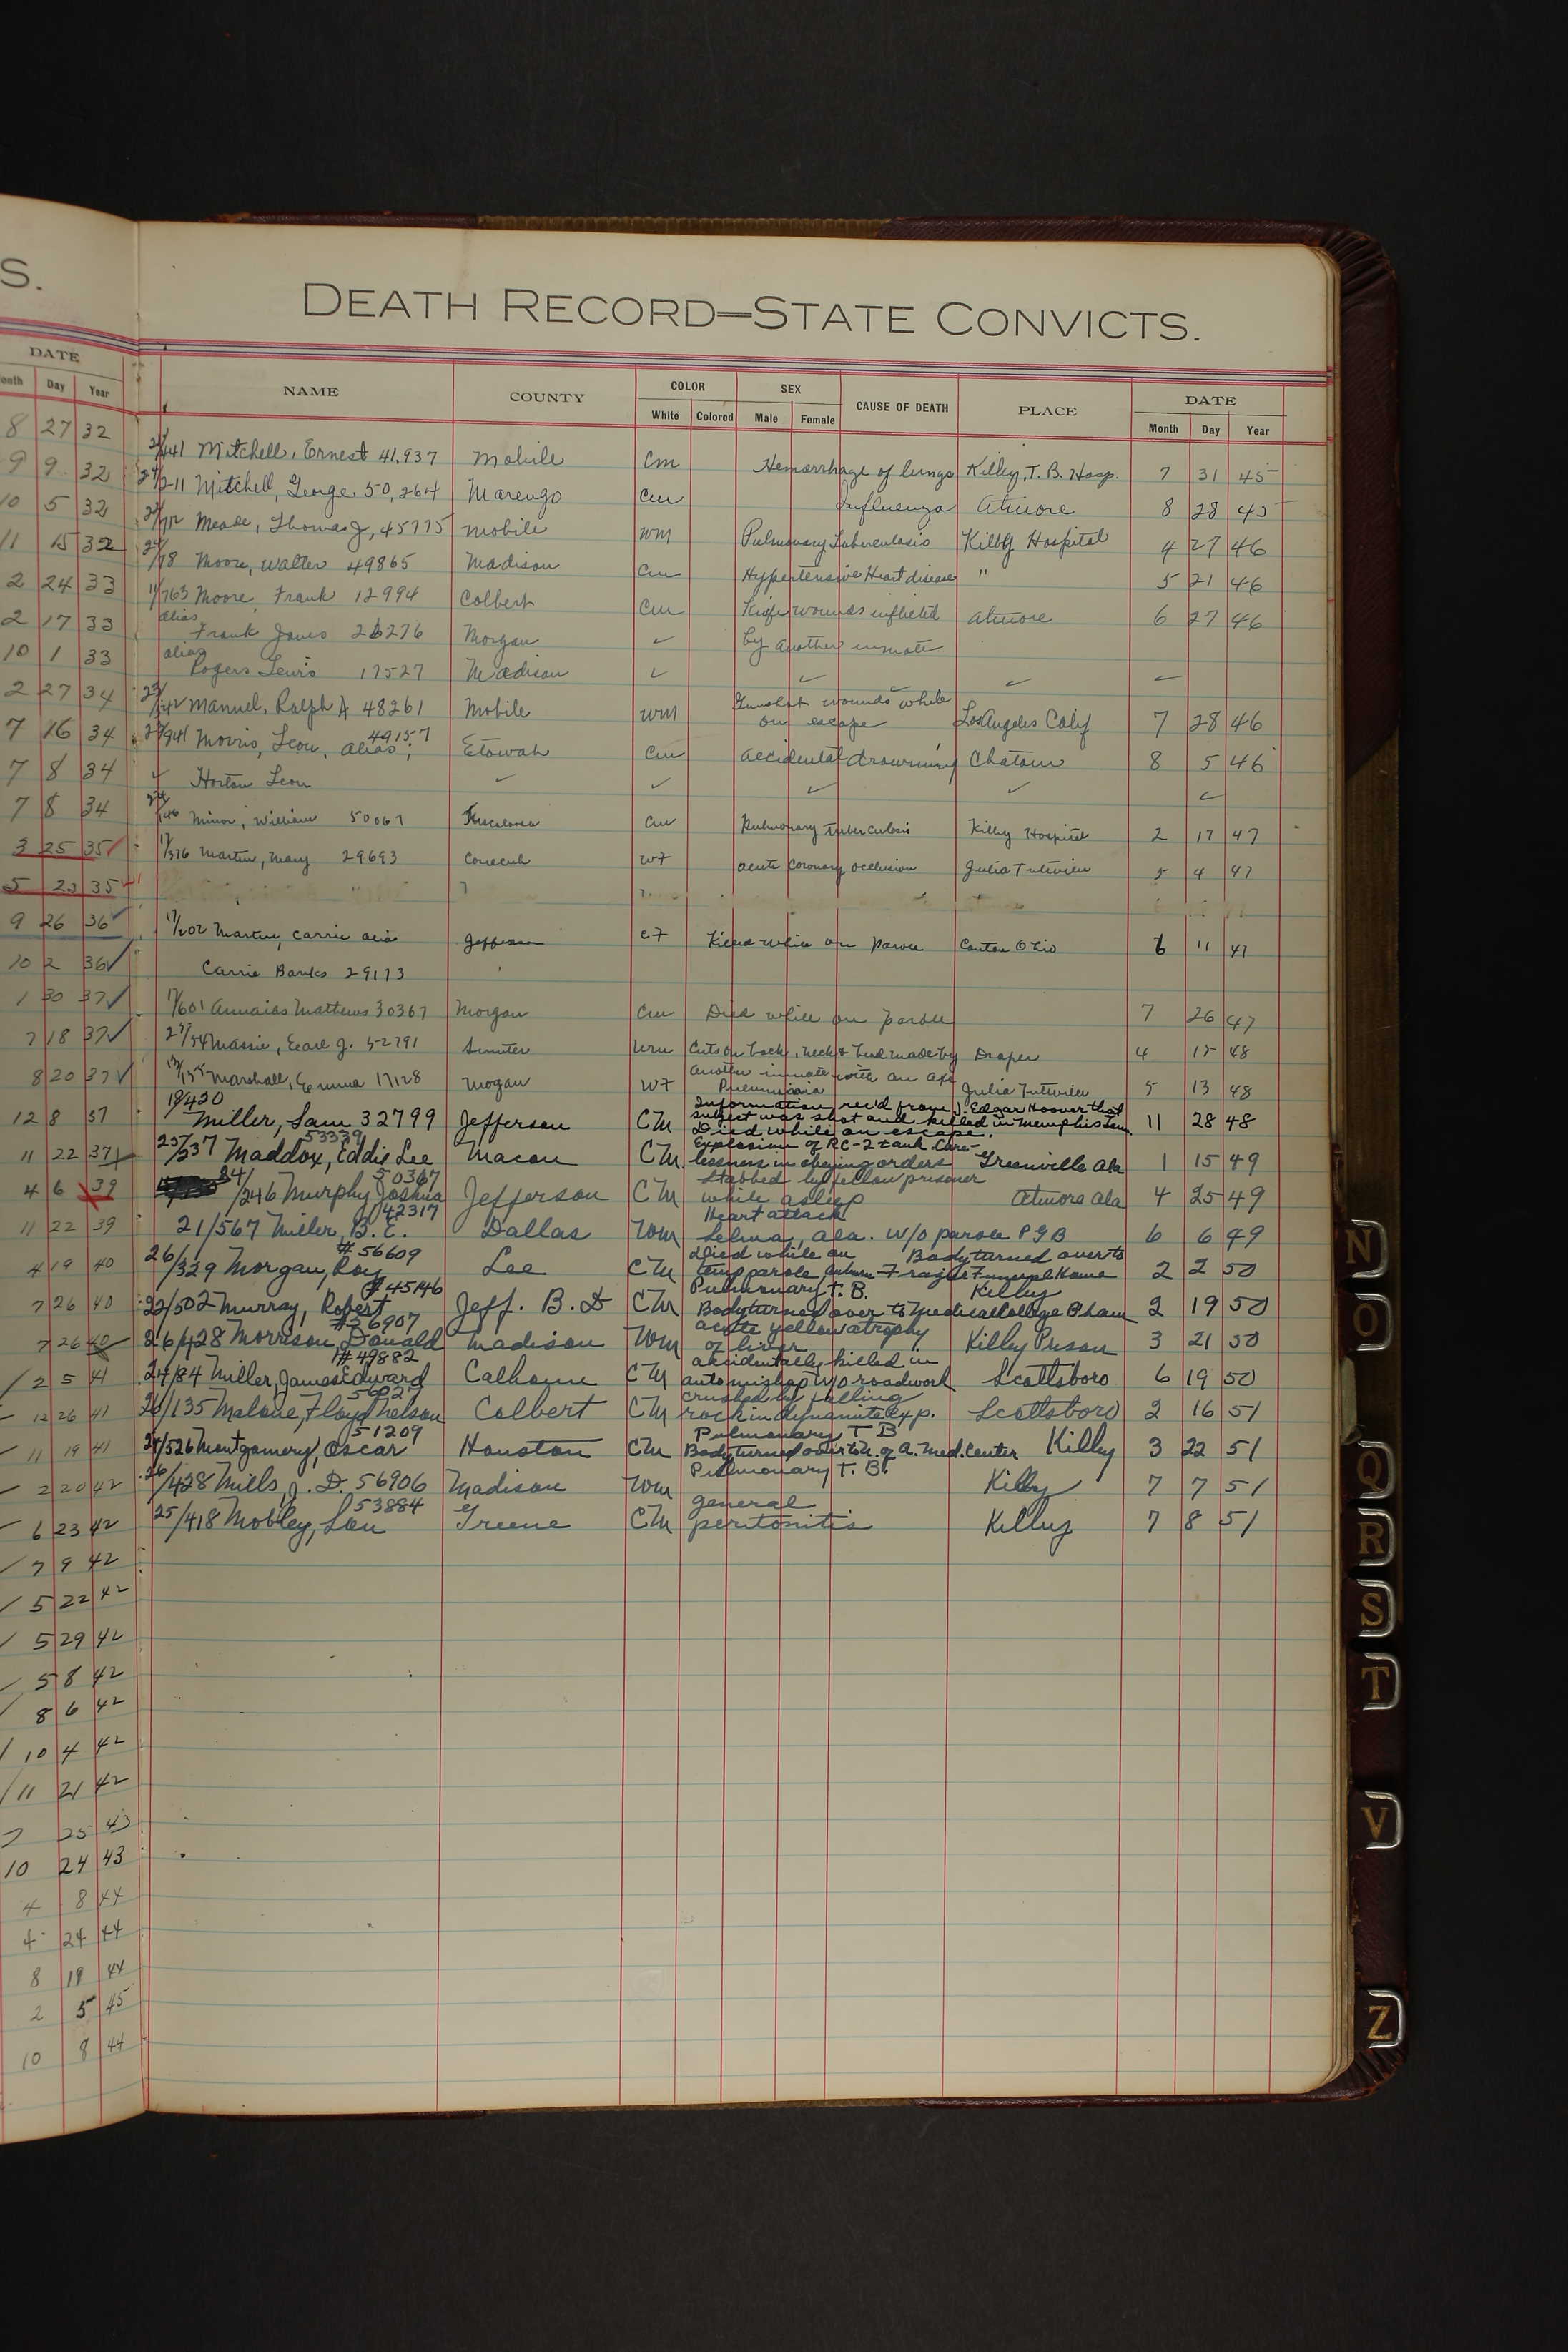 S.
DEATH RECORD=STATE CONVICTS.
DATE
Month Day Year
NAME COUNTY COLOR SEX CAUSE OF DEATH PLACE DATE
White Colored Male Female Month Day Year
8 27 32
9 9 32
10 5 32
11 15 32
2 24 33
2 17 33
10 1 33
2 27 34
7 16 34
7 8 34
7 8 34
3 25 35
5 23 35
9 26 36
10 2 36
1 30 37
7 18 37
8 20 37
12 8 37
11 22 37
4 6 39
11 22 39
4 19 40
7 26 40
7 26 40
2 5 41
12 26 41
11 19 41
2 20 42
6 23 42
7 9 42
5 22 42
5 29 42
5 8 42
8 6 42
10 4 42
11 21 42
7 25 43
10 24 43
4 8 44
4 24 44
8 19 44
2 5 45
10 8 44
Mitchell, Ernest 41,937 Mobile Cm Hemorrhage of lungs Kilby, T. B. Hosp. 7 31 45
Mitchell, George 50,264 Marengo Cm Influenza Atmore 8 28 45
Meade, Thomas J, 45775 Mobile WM Pulmonary Tuberculosis Kilby Hospital 4 27 46
Moore, Walter 49865 Madison Cm Hypertensive Heart disease " 5 21 46
11/763 Moore, Frank 12994 Colbert Cm Knife wounds inflicted Atmore 6 27 46
alias
Frank Jones 26276 Morgan ✓ by another inmate
alias
Rogers Lewis 17527 Madison ✓ ✓ ✓ ✓
Manuel, Ralph A 48261 Mobile WM Gunshot wounds while on escape Los Angeles Calif 7 28 46
Morris, Leon, alias; 49157 Etowah Cm Accidental drowning Chatom 8 5 46
✓ Horton Leon ✓ ✓ ✓ ✓ ✓
Minor, William 50067 Tuscaloosa Cm Pulmonary tuberculosis Kilby Hospital 2 17 47
17/376 Martin, Mary 29693 Conecuh WF acute coronary occlusion Julia Tutwiler 5 4 47
17/202 Martin, Carrie alias Jefferson CF Killed while on parole Canton Ohio 6 11 47
Carrie Banks 29173
17/601 Annaias Mathews 30367 Morgan Cm Died while on parole 7 26 47
Massie, Earl J. 52791 Sumter Wm Cuts on back, neck & head made by Draper 4 15 48
another inmate with an axe
Marshall, Emma 17128 Mogan WF Pneumonia Julia Tutwiler 5 13 48
18/420
Miller, Sam 32799 Jefferson CM Information rec'd from J. Edgar Hoover that
subject was shot and killed in Memphis Tenn. 11 28 48
Died while on escape.
53339
25/237 Maddox, Eddie Lee Macon CM Explosion of RC-2 tank. Care-
lessness in obeying orders Greenville Ala 1 15 49
50367
24/246 Murphy Joshua Jefferson CM Stabbed by fellow prisoner
while asleep Atmore Ala 4 25 49
42317
21/567 Miller, B. E. Dallas Wm Heart attack
Selma, Ala. W/o parole P&B 6 6 49
#56609
26/329 Morgan, Roy Lee CM Died while on Body turned over to
temp parole, Auburn Frazier Funeral Home 2 2 50
#45146
22/502 Murray, Robert Jeff. B. D CM Pulmonary T. B. Kilby
Body turned over to Medical College B'ham 2 19 50
#56907
26/428 Morrison, Donald Madison Wm acute yellow atrophy
of liver Kilby Prison 3 21 50
#49882
24/84 Miller, James Edward Calhoun CM accidentally killed in
auto mishap w/o roadwork Scottsboro 6 19 50
56027
26/135 Malone, Floyd Thelson Colbert CM crushed by falling
rock in dynamite exp. Scottsboro 2 16 51
51209
24/526 Montgomery, Oscar Houston CM Pulmonary T B
Body turned over to U. of A. Med. Center Kilby 3 22 51
26/428 Mills, J. D. 56906 Madison Wm Pulmonary T. B. Kilby 7 7 51
53884
25/418 Mobley, Lou Greene CM general
peritonitis Kilby 7 8 51
N
O
Q
R
S
T
V
Z